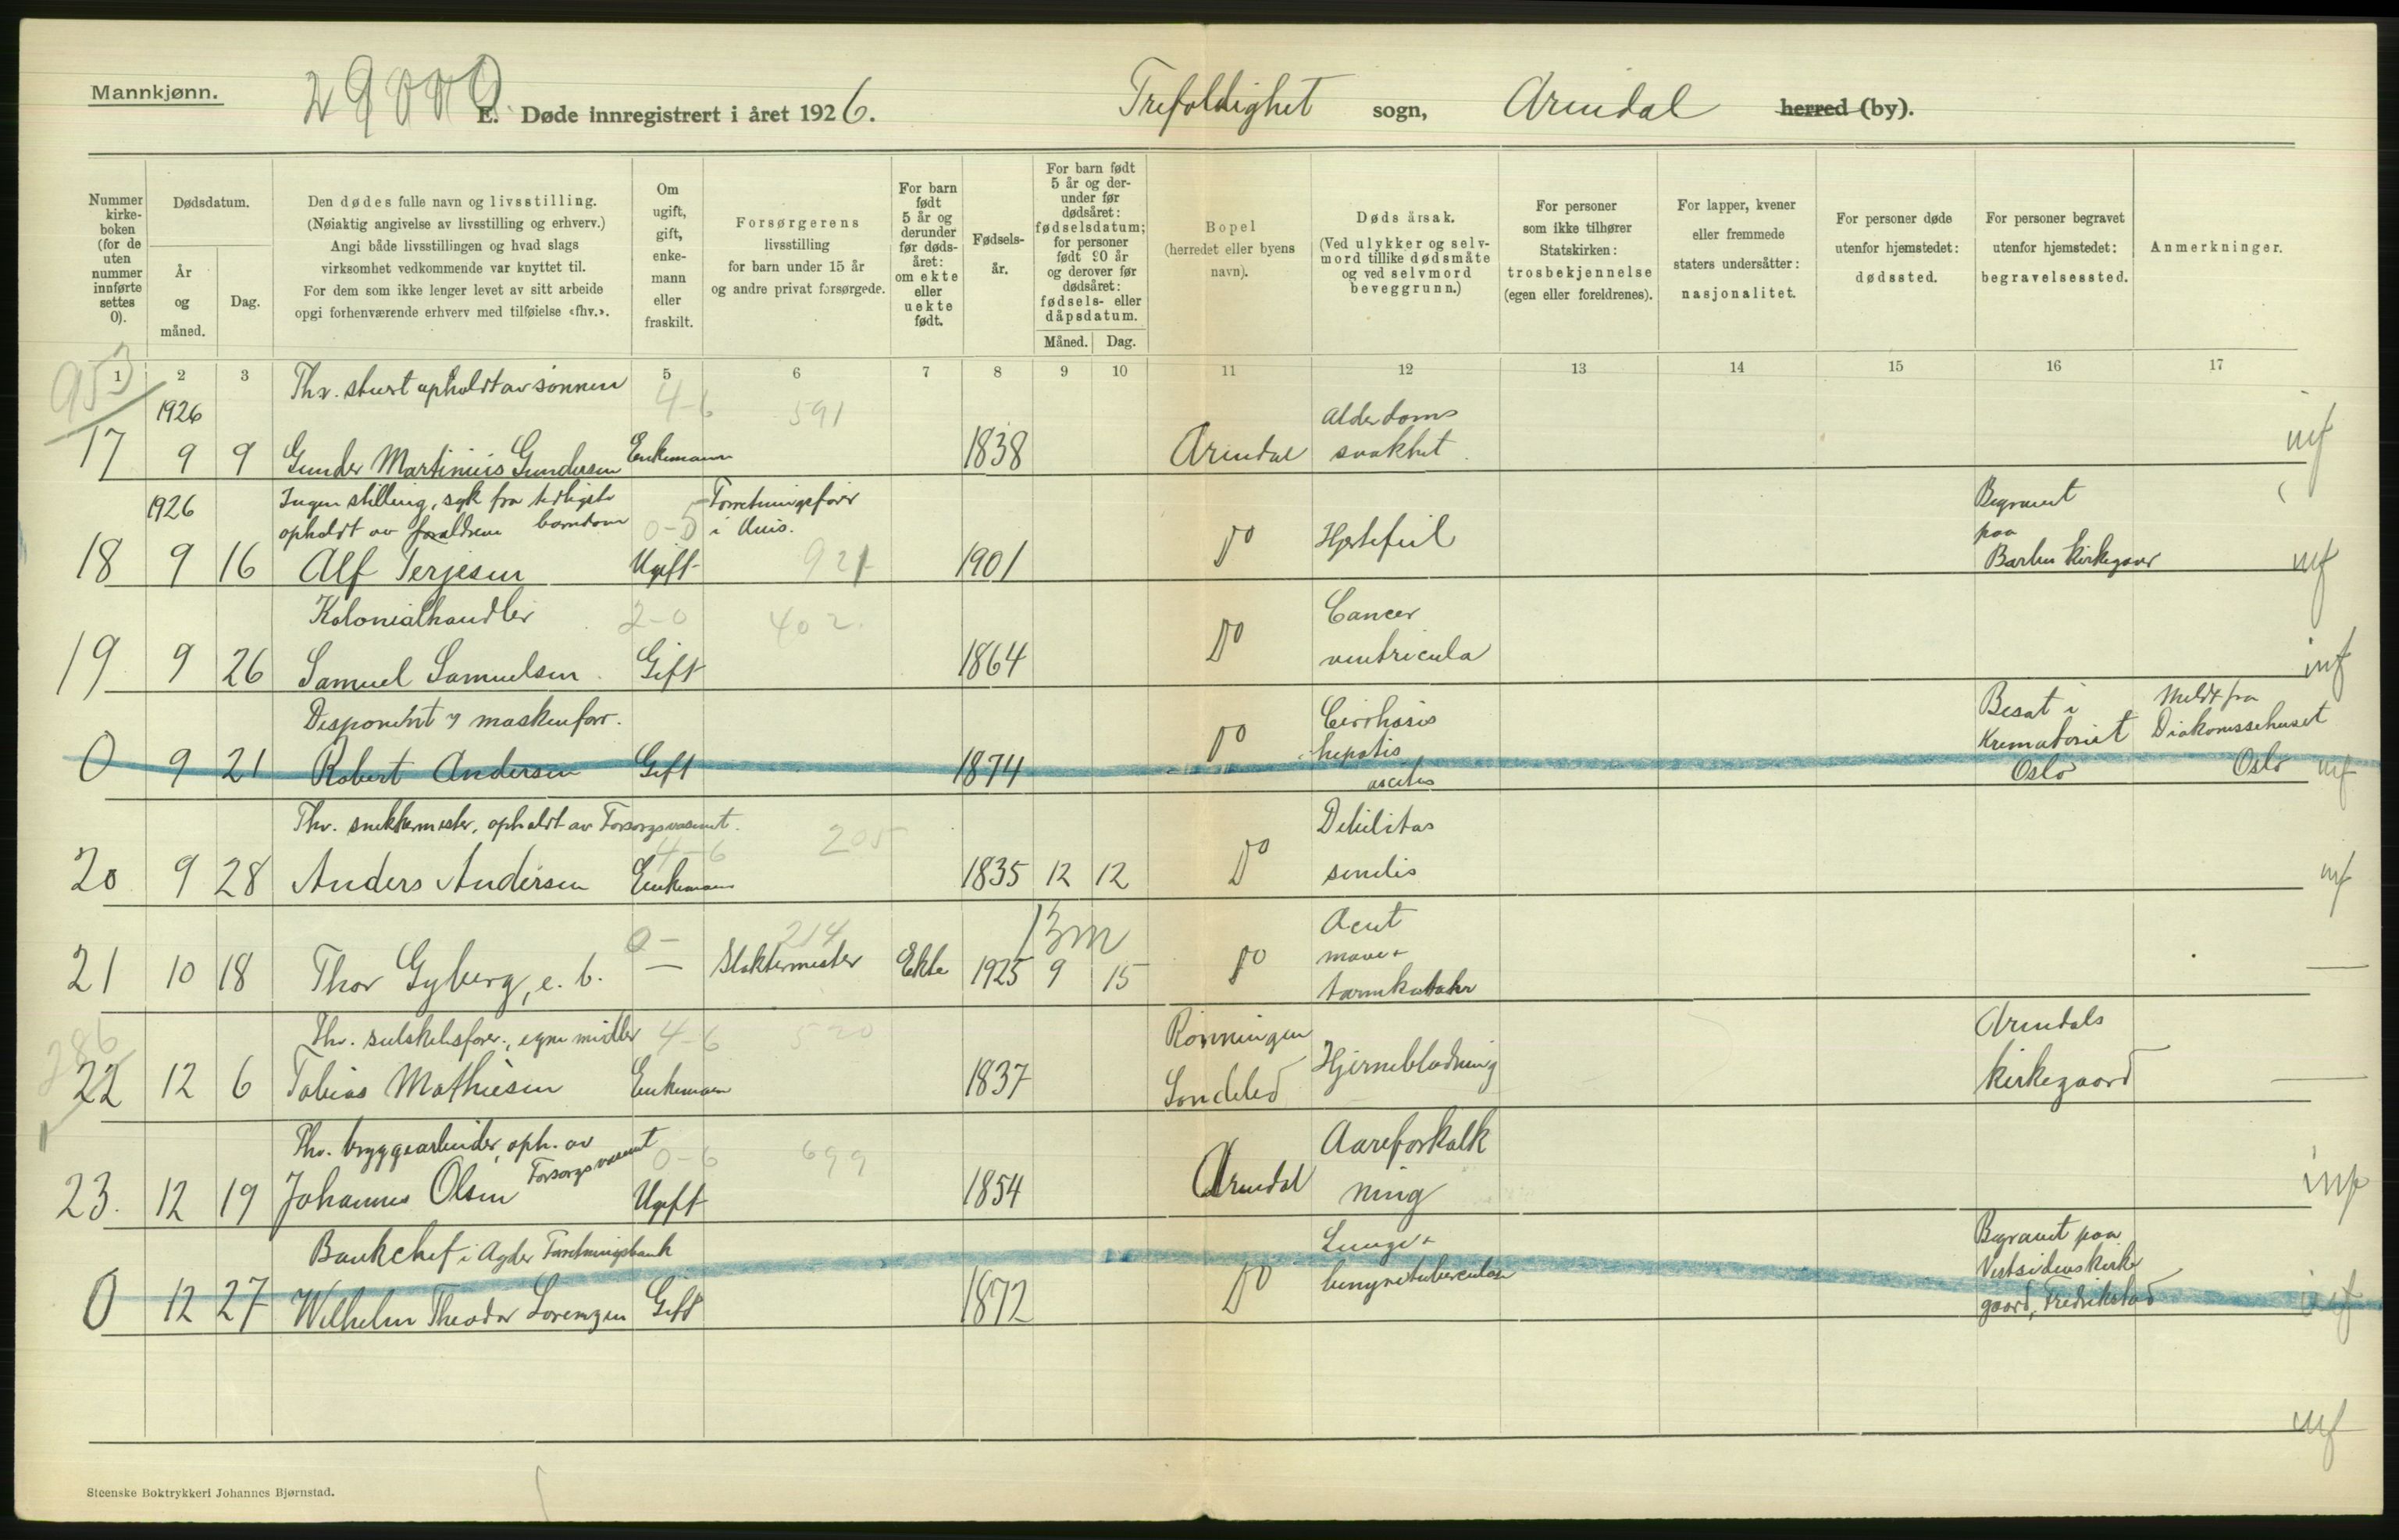 Mannkjønn.
29000
E. Døde innregistrert i året 1926.
Trefoldighet sogn, Arendal herred (by).
Nummer kirke-boken (for de uten nummer innførte settes 0).
Dødsdatum.
År og måned.
Dag.
Den dødes fulle navn og livsstilling.
(Nøiaktig angivelse av livsstilling og erhverv.)
Angi både livsstillingen og hvad slags
virksomhet vedkommende var knyttet til.
For dem som ikke lenger levet av sitt arbeide
opgi forhenværende erhverv med tilføielse «fhv.».
Om ugift, gift, enke-mann eller fraskilt.
Forsørgerens
livsstilling
for barn under 15 år
og andre privat forsørgede.
For barn født 5 år og derunder før døds-året: om ekte eller uekte født.
Fødsels-år.
For barn født 5 år og der-under før dødsåret: fødselsdatum; for personer født 90 år og derover før dødsåret: fødsels- eller dåpsdatum.
Måned. Dag.
Bopel
(herredet eller byens
navn).
Dødsårsak.
(Ved ulykker og selv-
mord tillike dødsmåte
og ved selvmord
beveggrunn.)
For personer
som ikke tilhører
Statskirken:
trosbekjennelse
(egen eller foreldrenes).
For lapper, kvener
eller fremmede
staters undersåtter:
nasjonalitet.
For personer døde
utenfor hjemstedet:
dødssted.
For personer begravet
utenfor hjemstedet:
begravelsessted.
Anmerkninger.
1 2 3 5 6 7 8 9 10 11 12 13 14 15 16 17
953
Fhv. opholdt av sønnen
4-6 591
1926
Alderdoms
17 9 9 Gunder Martinius Gundersen Enkemann 1838 Arendal svakhet
1926 Ingen stilling, syk fra tidligste Forretningsfører Begravet
opholdt av foraldrene barndom 0-5 i paa
18 9 16 Alf Terjesen Ugift 921 1901 Do Hjertefeil Barbu kirkegaar
Kolonialhandler 2-0 402 Cancer
19 9 26 Samuel Samuelsen Gift 1864 Do ventricula
Disponent maskinforr. Cirrhosis Besat i Meldt fra
hepatis Krematoriet Diakonissehuset
0 9 21 Robert Andersen Gift 1874 Do ascites Oslo Oslo
Fhv. snekkermester, opholdt av Forsorgsvæsenet. 4-6 205 Debilitas
20 9 28 Anders Andersen Enkemann 1835 12 12 Do senilis
0- 214 13m Acut
21 10 18 Thor Gyberg, e. b. — Slaktermester Ekte 1925 9 15 Do mave-
tarmkatahr
286 Fhv. , egne midler 4-6 520 Rønningen Arendals
22 12 6 Tobias Mathiesen Enkemann 1837 Søndeled Hjerneblødning kirkegaard
Fhv. bryggearbeider, oph. av Forsorgsvæsenet 0-6 699 Aareforkalk
23. 12 19 Johannes Olsen Ugift 1854 Arendal ning
Bankchef i Agder Forretningsbank Lunge- Begravet paa
Vestsidens kirke
0 12 27 Wilhelm Theodor Lorentzen Gift 1872 Do gaard, Fredrikstad
Steenske Boktrykkeri Johannes Bjørnstad.